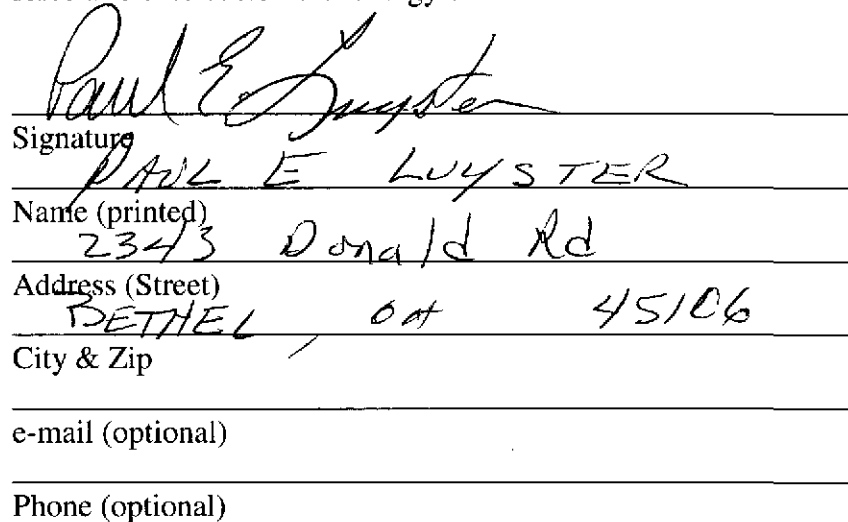 Paul E. Luyster
Signature
PAUL E LUYSTER
Name (printed)
2343 Donald Rd
Address (Street)
BETHEL, OH 45106
City & Zip
e-mail (optional)
Phone (optional)